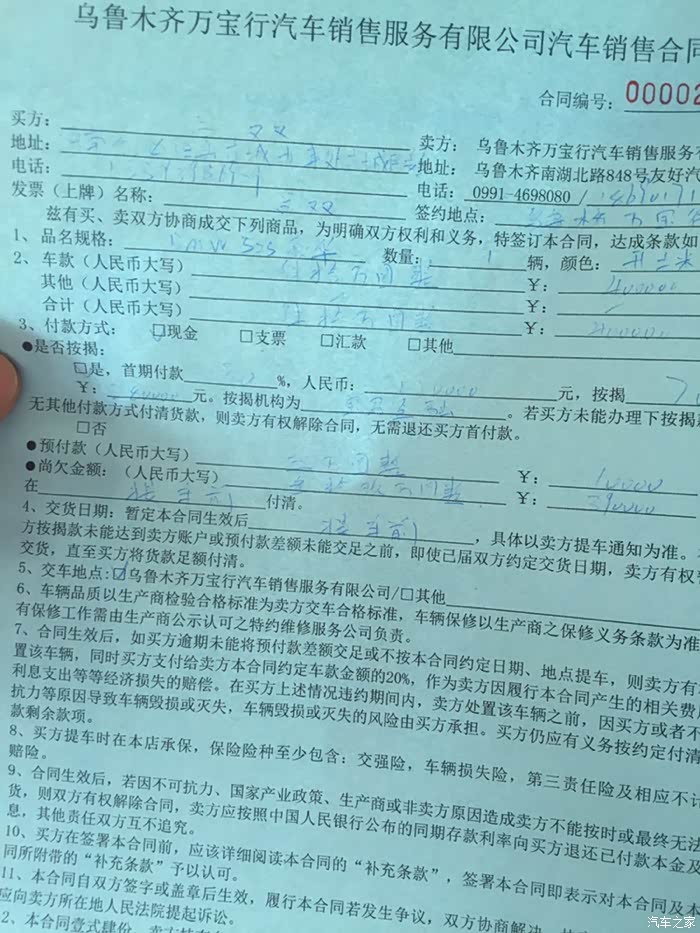 乌鲁木齐万宝行汽车销售服务有限公司汽车销售合同
合同编号：00002
买方：
卖方： 乌鲁木齐万宝行汽车销售服务有
地址：
地址： 乌鲁木齐南湖北路848号友好汽
电话：
电话：0991-4698080 /
发票（上牌）名称：
签约地点：
兹有买、卖双方协商成交下列商品，为明确双方权利和义务，特签订本合同，达成条款如
1、品名规格： BMW 525 数量： 1 辆，颜色：
2、车款（人民币大写） 肆拾万圆整 ￥： 400000
其他（人民币大写） ￥：
合计（人民币大写） 肆拾万圆整 ￥： 400000
3、付款方式： □现金 □支票 □汇款 □其他
●是否按揭：
□是，首期付款 %，人民币： 元，按揭
￥： 元。按揭机构为 。若买方未能办理下按揭
无其他付款方式付清货款，则卖方有权解除合同，无需退还买方首付款。
□否
●预付款（人民币大写） 万圆整 ￥： 10000
●尚欠金额：（人民币大写） 万圆整 ￥： 390000
在 提车前 付清。
4、交货日期：暂定本合同生效后 提车前 ，具体以卖方提车通知为准。
方按揭款未能达到卖方账户或预付款差额未能交足之前，即使已届双方约定交货日期，卖方有权
交货，直至买方将货款足额付清。
5、交车地点：☑乌鲁木齐万宝行汽车销售服务有限公司/□其他
6、车辆品质以生产商检验合格标准为卖方交车合格标准，车辆保修以生产商之保修义务条款为准
有保修工作需由生产商公示认可之特约维修服务公司负责。
7、合同生效后，如买方逾期未能将预付款差额交足或不按本合同约定日期、地点提车，则卖方有
置该车辆，同时买方支付给卖方本合同约定车款金额的20%，作为卖方因履行本合同产生的相关费
利息支出等等经济损失的赔偿。在买方上述情况违约期间内，卖方处置该车辆之前，因买方或者不
抗力等原因导致车辆毁损或灭失，车辆毁损或灭失的风险由买方承担。买方仍应有义务按约定付清
款剩余款项。
8、买方提车时在本店承保，保险险种至少包含：交强险，车辆损失险，第三责任险及相应不计
赔险。
9、合同生效后，若因不可抗力、国家产业政策、生产商或非卖方原因造成卖方不能按时或最终无法
货，则双方有权解除合同，卖方应按照中国人民银行公布的同期存款利率向买方退还已付款本金及
息，其他责任双方互不追究。
10、买方在签署本合同前，应该详细阅读本合同的“补充条款”，签署本合同即表示对本合同及本
同所附带的“补充条款”予以认可。
11、本合同自双方签字或盖章后生效，履行本合同若发生争议，双方协商解决，
应向卖方所在地人民法院提起诉讼。
2、本合同壹式肆份，
汽车之家